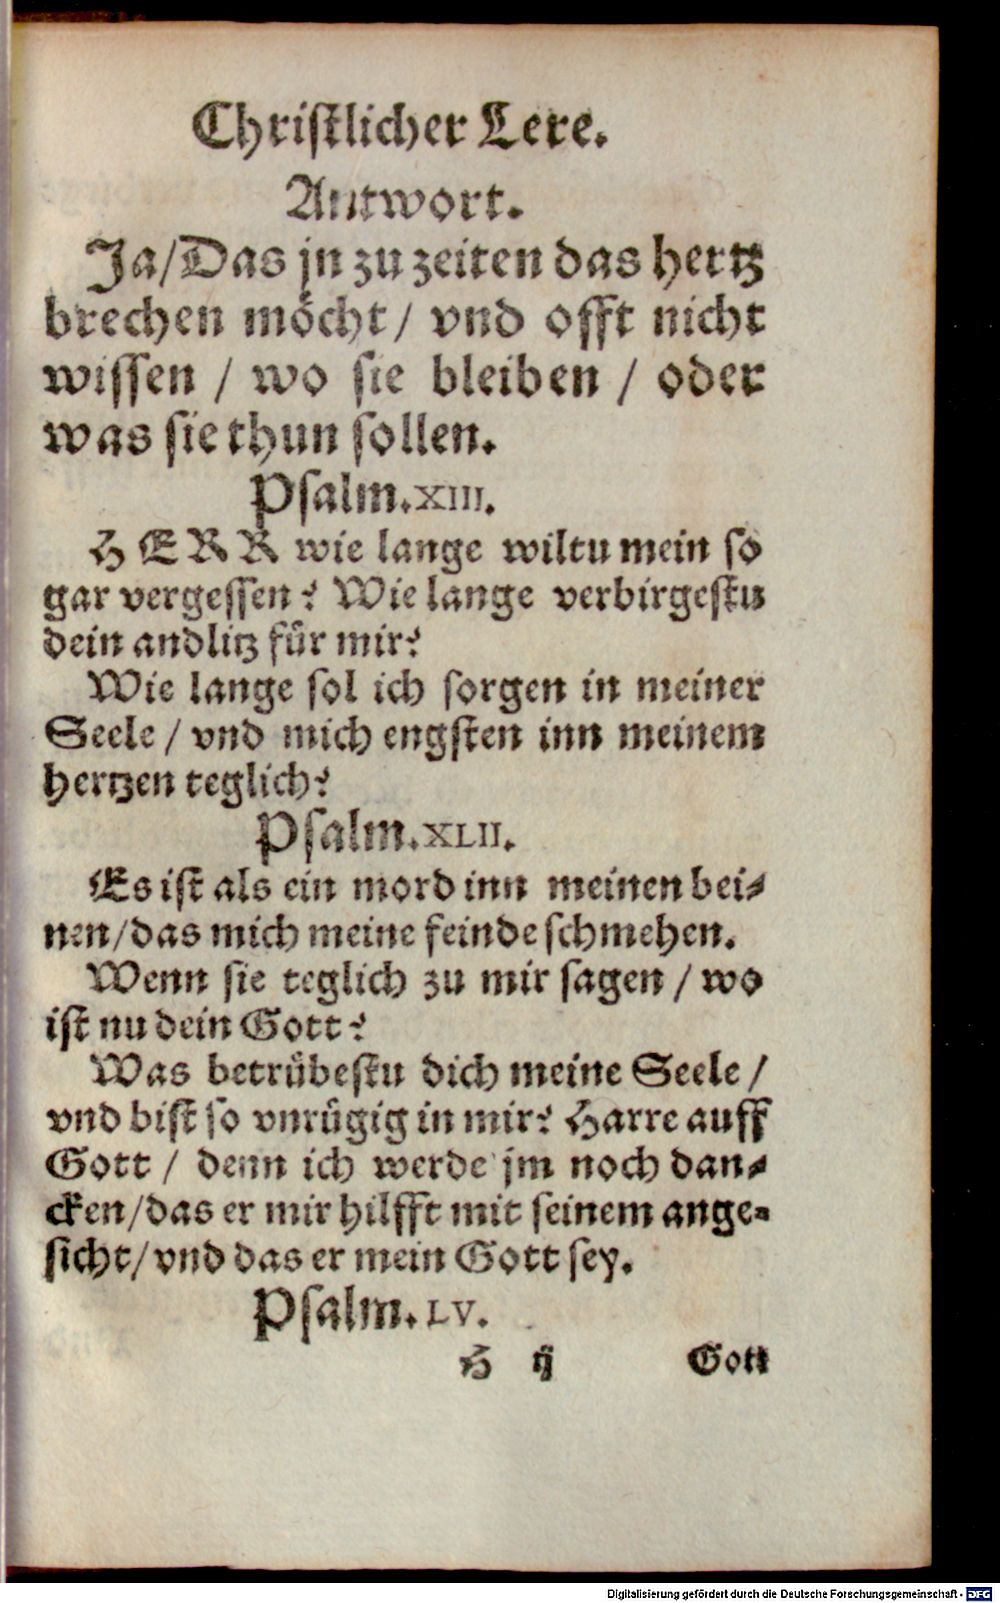 Christlicher Lere.
Antwort.
Ja/Das jn zu zeiten das hertz
brechen möcht/ vnd offt nicht
wissen / wo sie bleiben / oder
was sie thun sollen.
Psalm.XIII.
HERR wie lange wiltu mein so
gar vergessen? Wie lange verbirgestu
dein andlitz für mir?
Wie lange sol ich sorgen in meiner
Seele / vnd mich engsten inn meinem
hertzen teglich?
Psalm.XLII.
Es ist als ein mord inn meinen bei-
nen/das mich meine feinde schmehen.
Wenn sie teglich zu mir sagen / wo
ist nu dein Gott?
Was betrübestu dich meine Seele /
vnd bist so vnrügig in mir? Harre auff
Gott / denn ich werde jm noch dan-
cken/das er mir hilfft mit seinem ange-
sicht/vnd das er mein Gott sey.
Psalm.LV.
H ij Gott
Digitalisierung gefördert durch die Deutsche Forschungsgemeinschaft - DFG